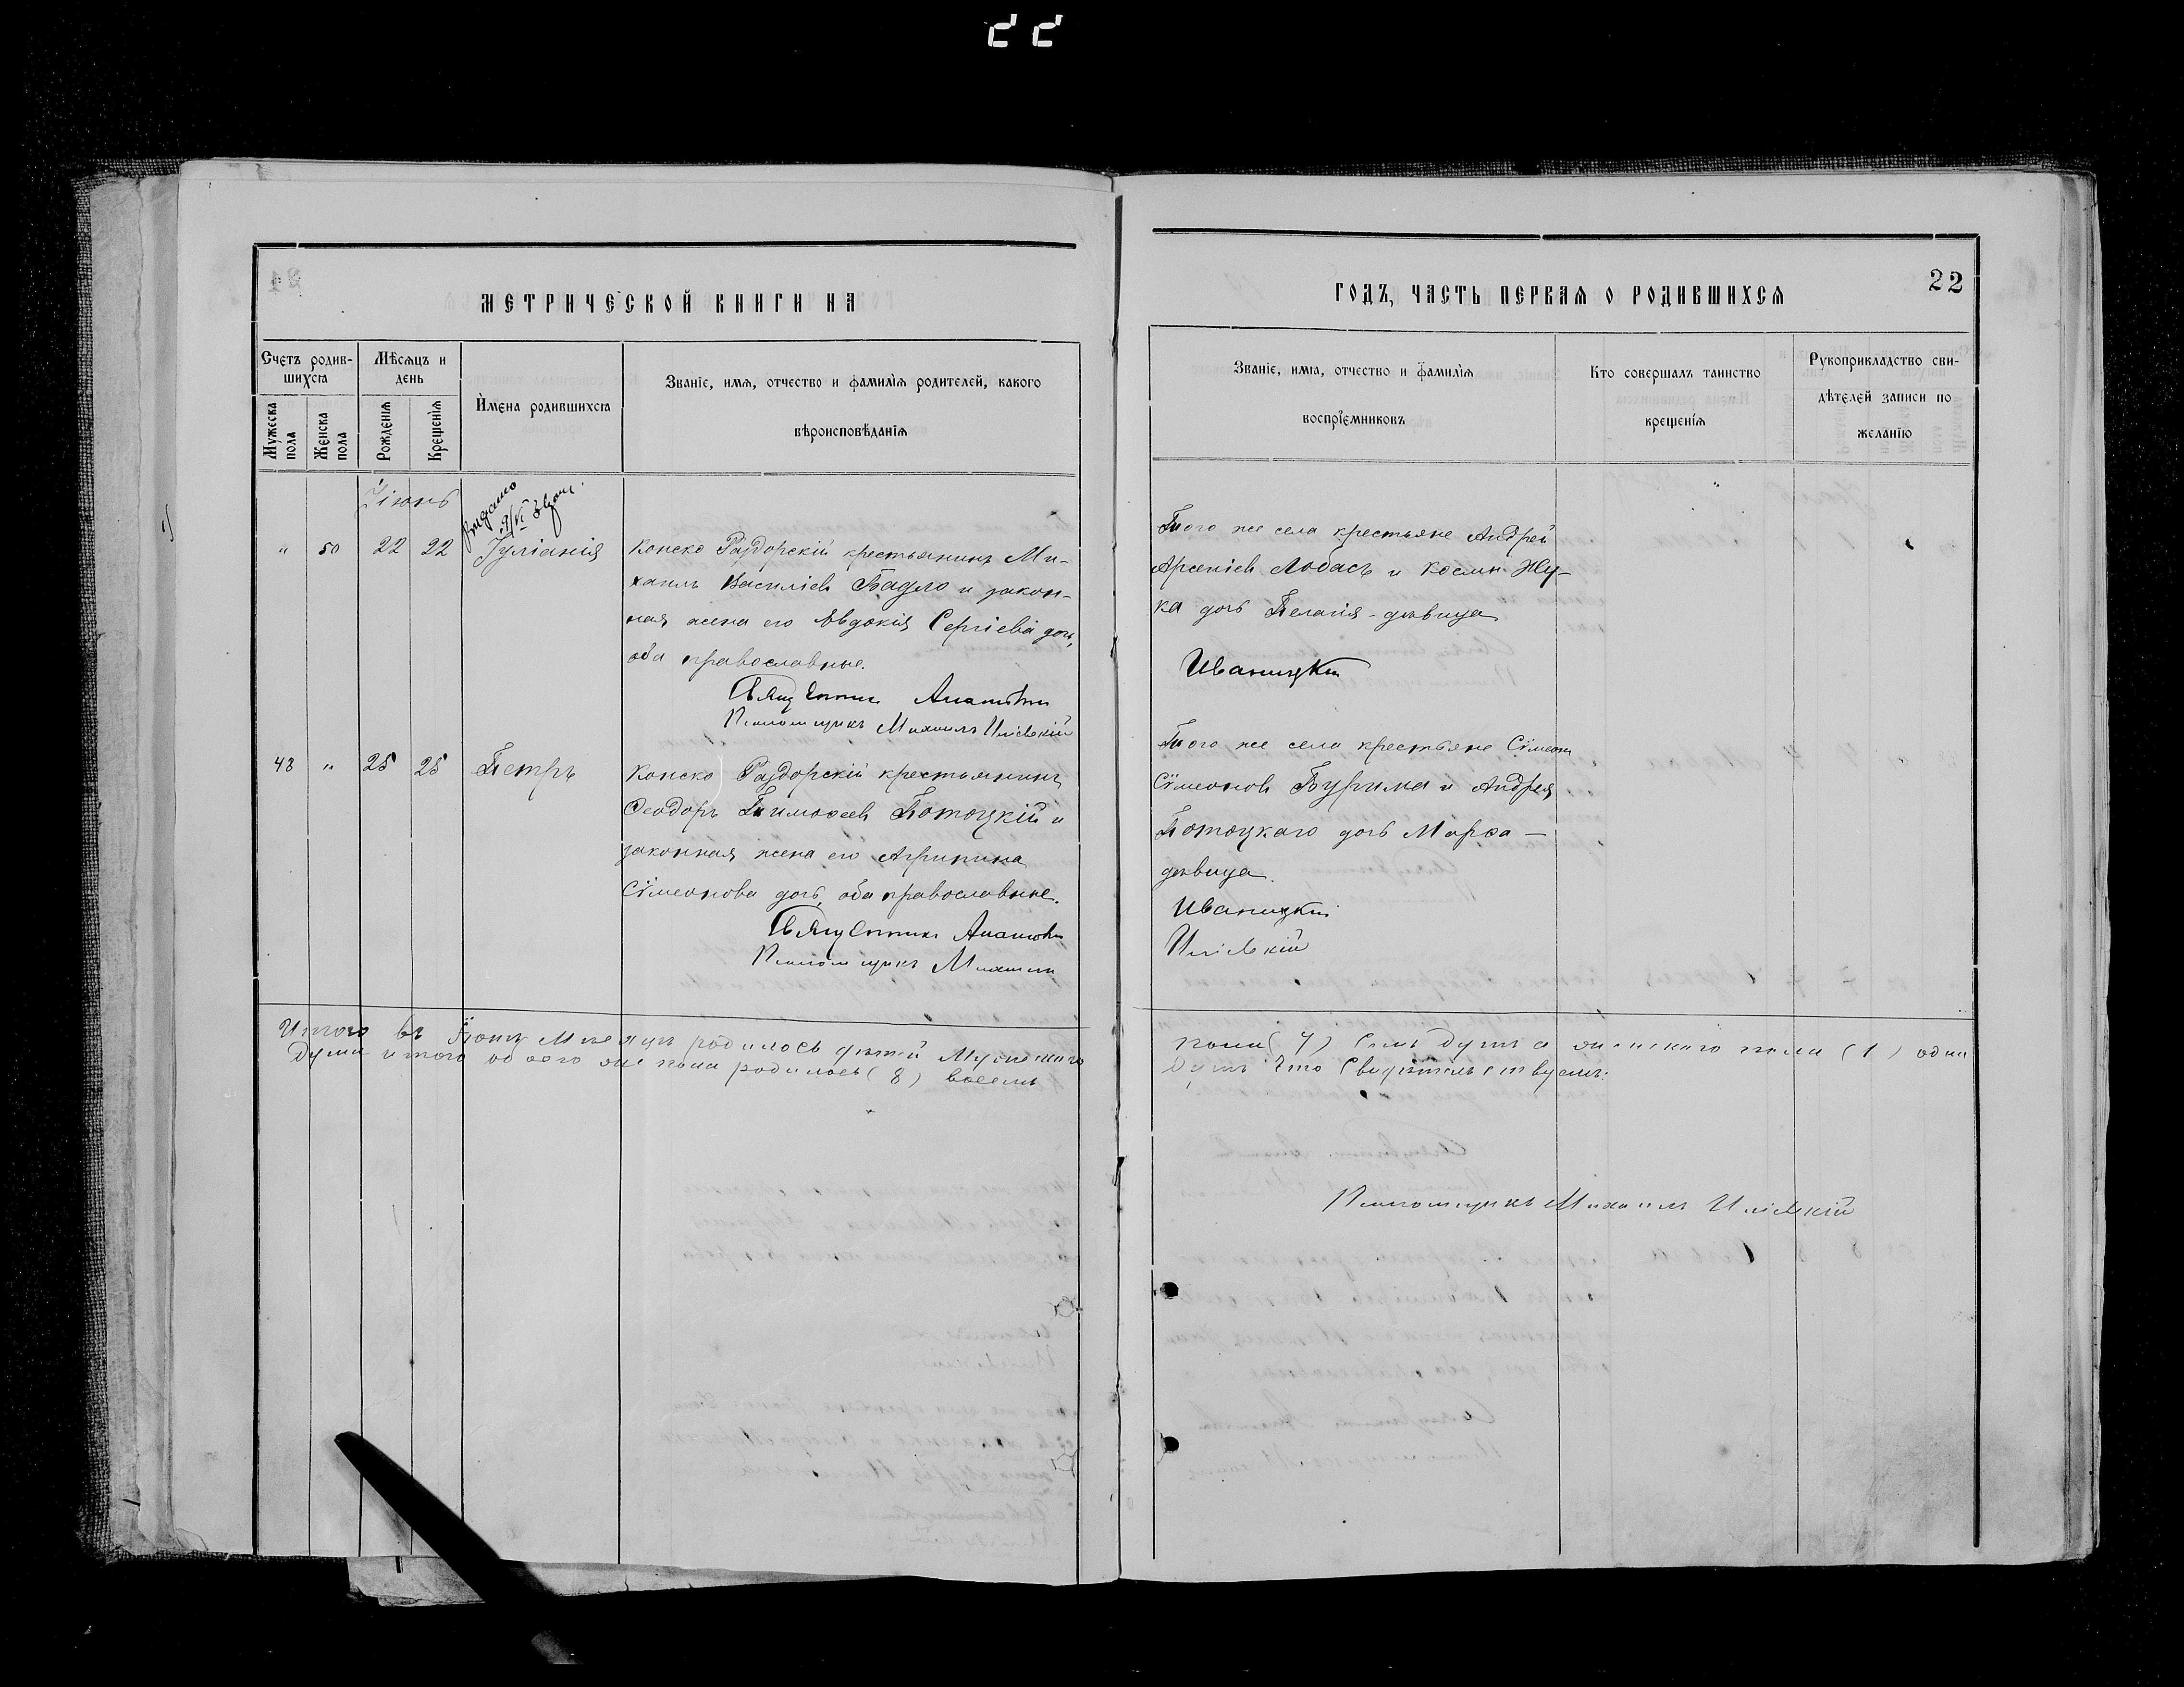 22
МЕТРИЧЕСКОЙ КНИГИ НА
Счетъ родив-
шихся
Мужеска пола
Женска пола
Мѣсяцъ и
день
Рожденія
Крещенія
Имена родившихся
Званіе, имя, отчество и фамилія родителей, какого
вѣроисповѣданія
Іюнь
Выдано
" 50 22 22 Іуліанія
Конско Раздорскій крестьянинъ Ми-
хаилъ Василіевъ Бадло и закон-
ная жена его Евдокія Сергіева дочь,
оба православные.
Священникъ
Псаломщикъ Михаилъ
48 " 25 25 Петръ
Конско Раздорскій крестьянинъ
Ѳеодоръ Тимоѳеевъ Потоцкій и
законная жена его Агрипина
Сѵмеонова дочь, оба православные.
Священникъ
Псаломщикъ Михаилъ
Итого въ Іюнѣ Мѣсяцѣ родилось дѣтей Мужескаго
Души итого обоего же пола родилось (8) восемь
ГОДЪ, ЧАСТЬ ПЕРВАЯ О РОДИВШИХСЯ
22
Званіе, имя, отчество и фамилія
воспріемниковъ
Кто совершалъ таинство
крещенія
Рукоприкладство сви-
дѣтелей записи по
желанію
Того же села крестьяне Андрей
Арсеніевъ Лобасъ и Космы Жу-
ка дочь Пелагія - дѣвица
Иваницкій
Того же села крестьяне Сѵмеонъ
Сѵмеоновъ Бурима и Андрея
Потоцкаго дочь Марѳа -
дѣвица.
Иваницкій
пола (7) Семь душъ а женскаго пола (1) одна
Душъ Что Свидѣтельствуемъ:
Псаломщикъ Михаилъ